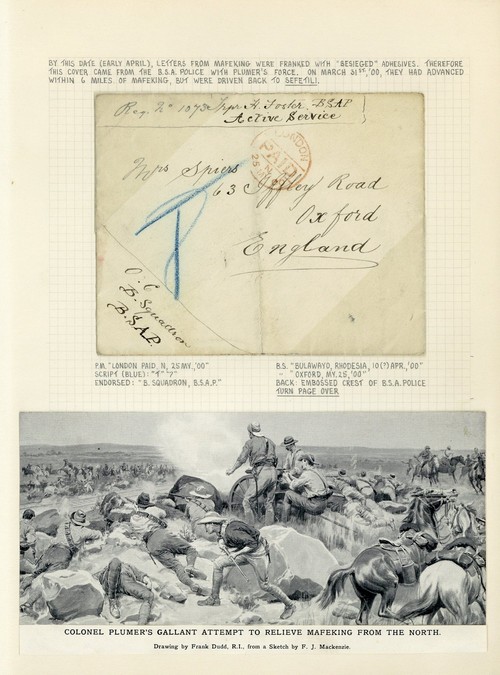 BY THIS DATE (EARLY APRIL), LETTERS FROM MAFEKING WERE FRANKED WITH "BESIEGED" ADHESIVES. THEREFORE
THIS COVER CAME FROM THE B.S.A. POLICE WITH PLUMER'S FORCE. ON MARCH 31ST,'00, THEY HAD ADVANCED
WITHIN 6 MILES OF MAFEKING, BUT WERE DRIVEN BACK TO SEFETILI.
Reg. No 1073 Tpr A Foster BSAP
Active Service
LONDON
PAID
Mrs Spiers
63 Iffley Road
Oxford
England
T
O.C
B. Squadron
B.S.A.P.
P.M. "LONDON PAID, N, 25 MY.,'00"
SCRIPT (BLUE): "T" "7"
ENDORSED: "B. SQUADRON, B.S.A.P."
B.S. "BULAWAYO, RHODESIA, 10(?) APR.,'00"
– "OXFORD, MY. 25, '00"
BACK: EMBOSSED CREST OF B.S.A. POLICE
TURN PAGE OVER
COLONEL PLUMER'S GALLANT ATTEMPT TO RELIEVE MAFEKING FROM THE NORTH.
Drawing by Frank Dodd, R.I., from a Sketch by F. J. Mackenzie.